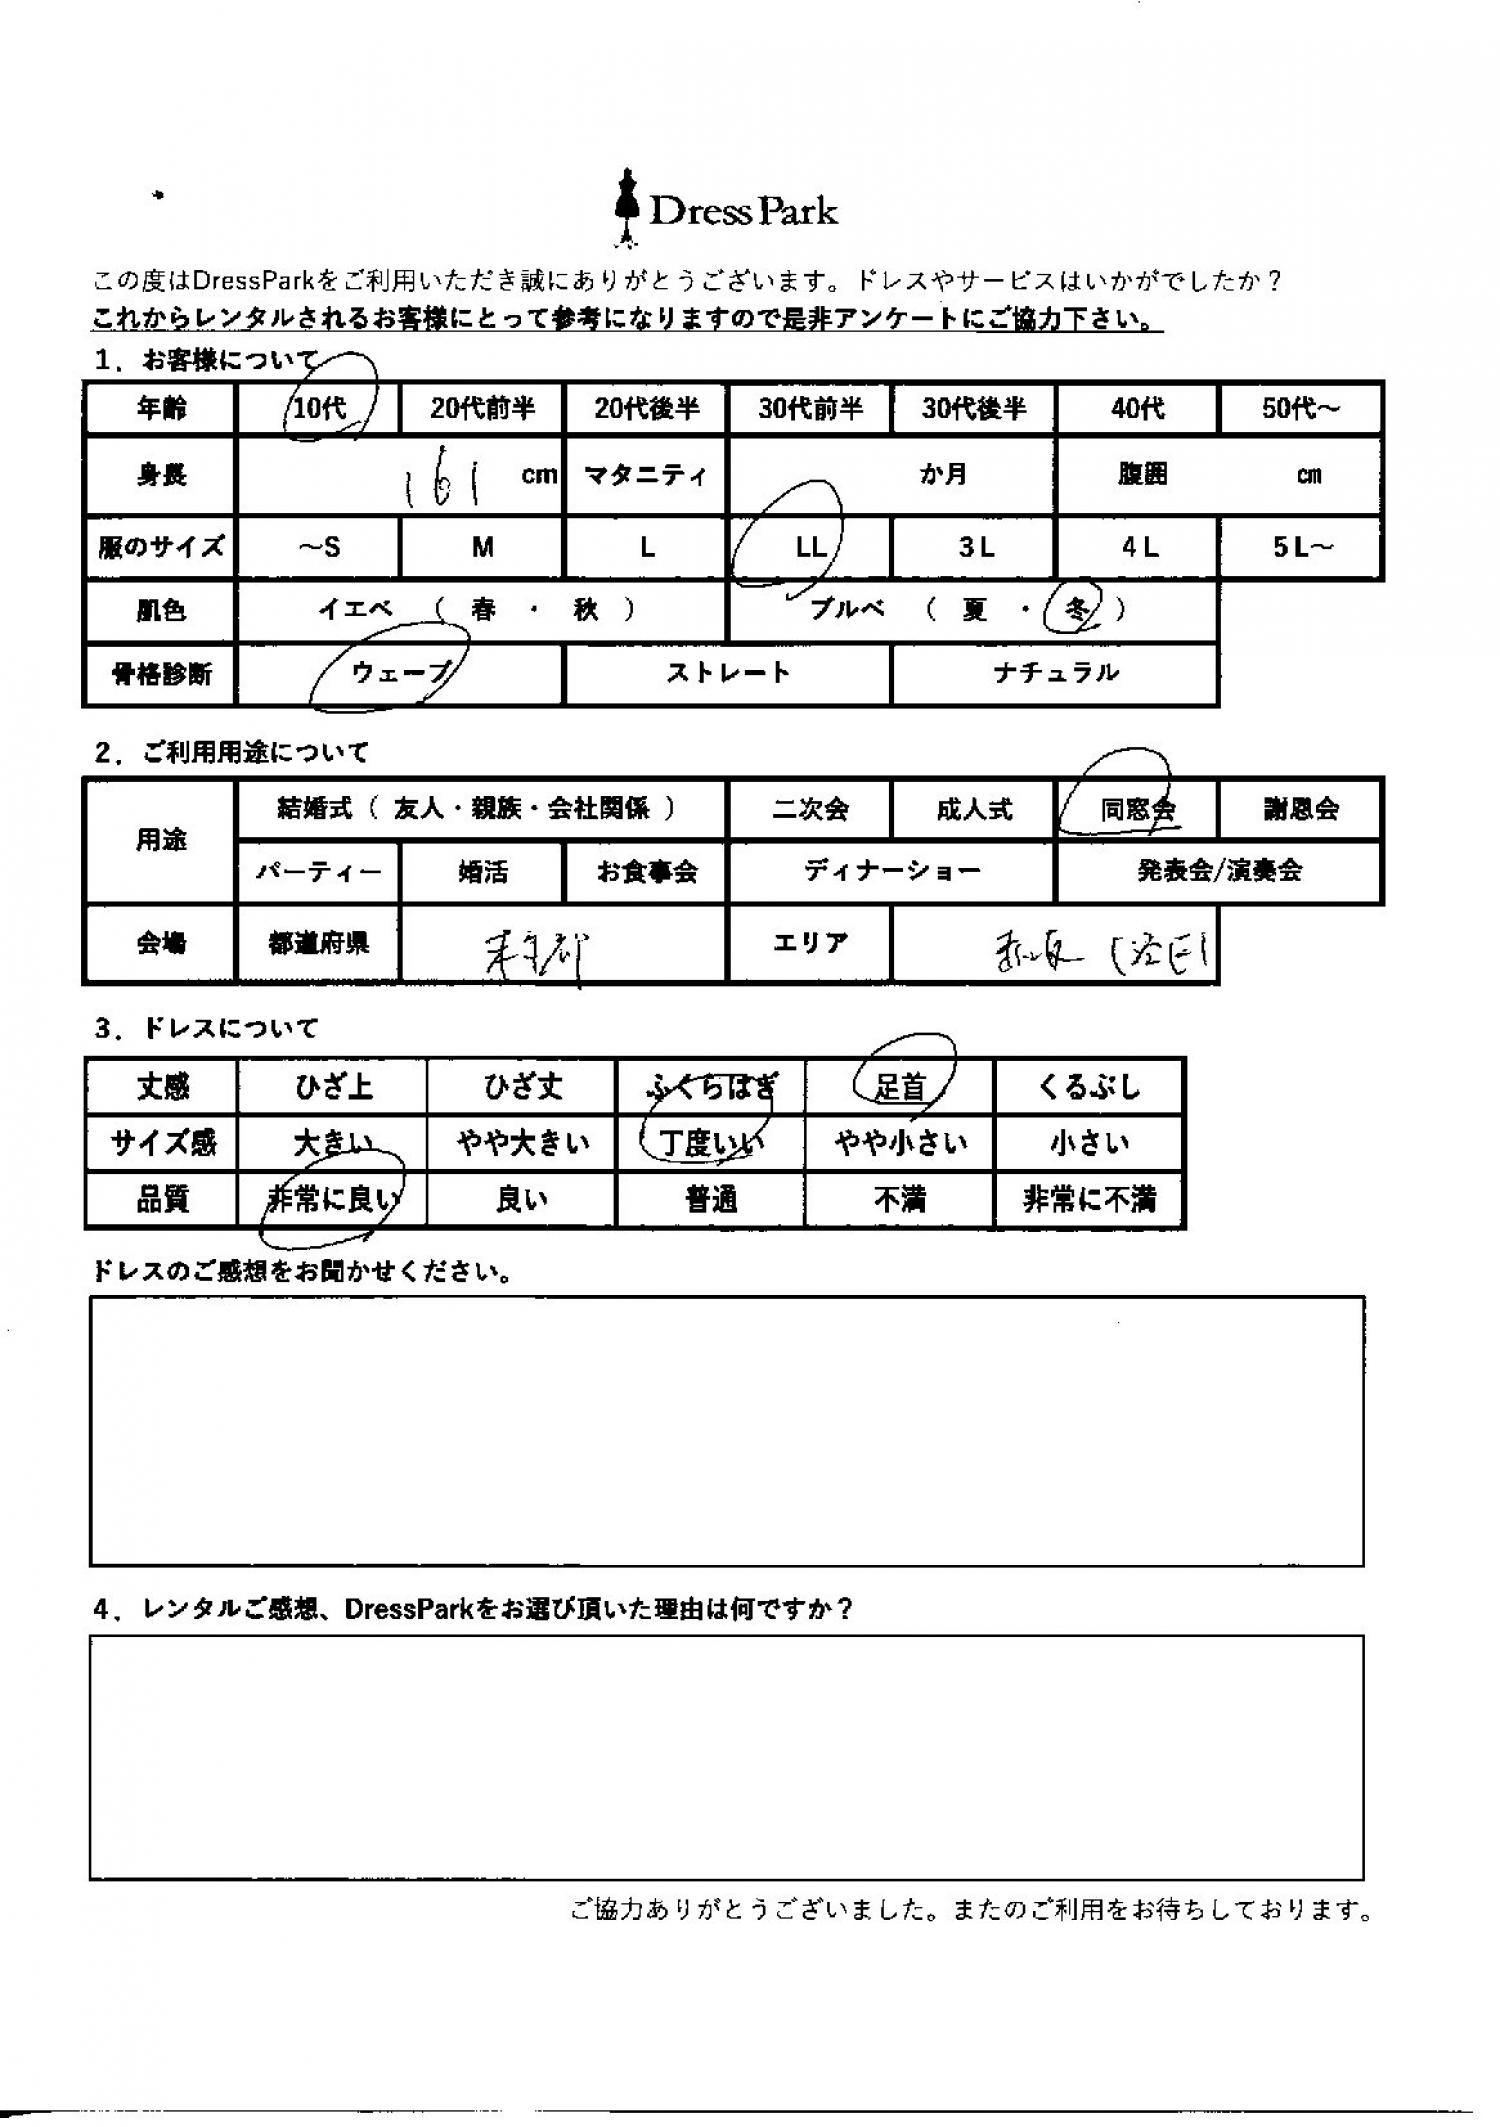 Dress Park
この度はDressParkをご利用いただき誠にありがとうございます。ドレスやサービスはいかがでしたか？
これからレンタルされるお客様にとって参考になりますので是非アンケートにご協力下さい。
1．お客様について
年齢 10代 20代前半 20代後半 30代前半 30代後半 40代 50代～
身長 161 cm マタニティ か月 腹囲 cm
服のサイズ ～S M L LL 3L 4L 5L～
肌色 イエベ （ 春 ・ 秋 ） ブルベ （ 夏 ・ 冬 ）
骨格診断 ウェーブ ストレート ナチュラル
2．ご利用用途について
用途 結婚式（ 友人・親族・会社関係 ） 二次会 成人式 同窓会 謝恩会
パーティー 婚活 お食事会 ディナーショー 発表会/演奏会
会場 都道府県 東京都 エリア 赤坂
3．ドレスについて
丈感 ひざ上 ひざ丈 ふくらはぎ 足首 くるぶし
サイズ感 大きい やや大きい 丁度いい やや小さい 小さい
品質 非常に良い 良い 普通 不満 非常に不満
ドレスのご感想をお聞かせください。
4．レンタルご感想、DressParkをお選び頂いた理由は何ですか？
ご協力ありがとうございました。またのご利用をお待ちしております。